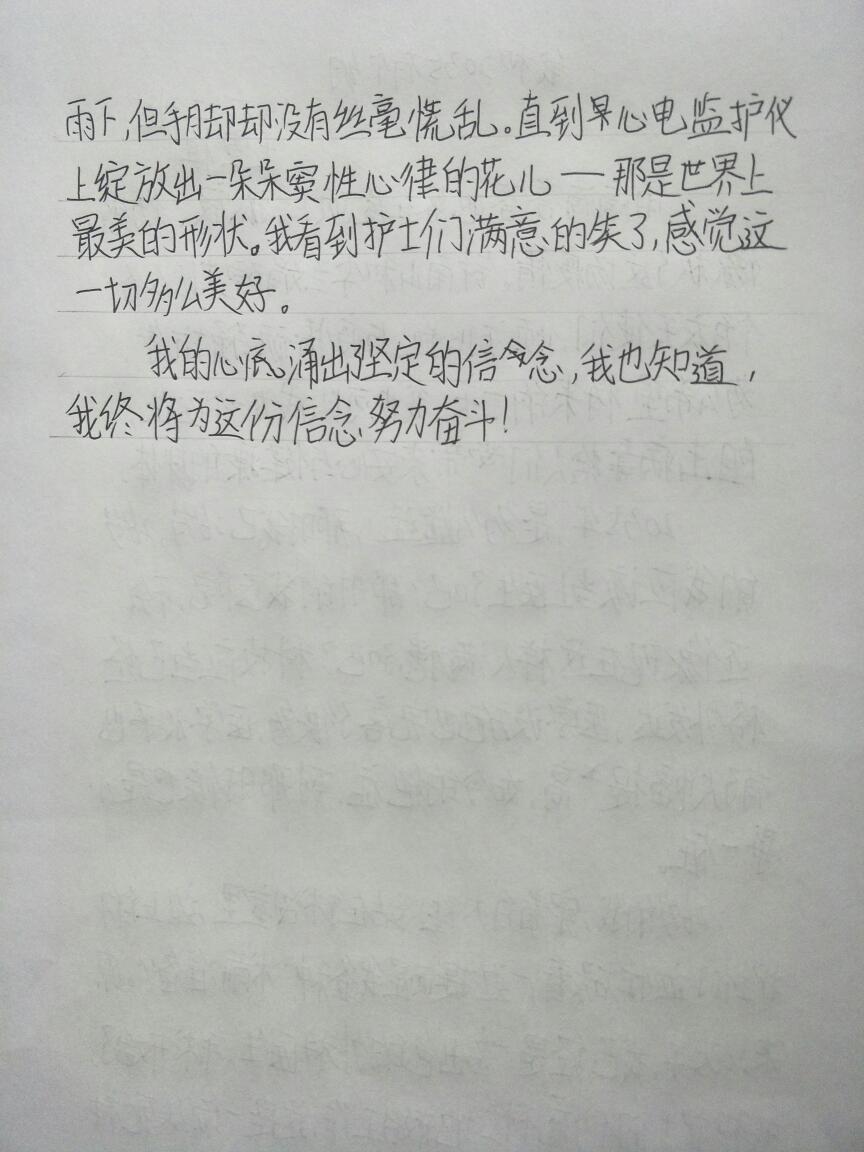 雨下,但手脚却却没有丝毫慌乱。直到早心电监护仪
上绽放出一朵朵窦性心律的花儿——那是世界上
最美的形状。我看到护士们满意的笑了,感觉这
一切多么美好。
我的心底涌出了坚定的信念,我也知道,
我终将为这份信念努力奋斗!